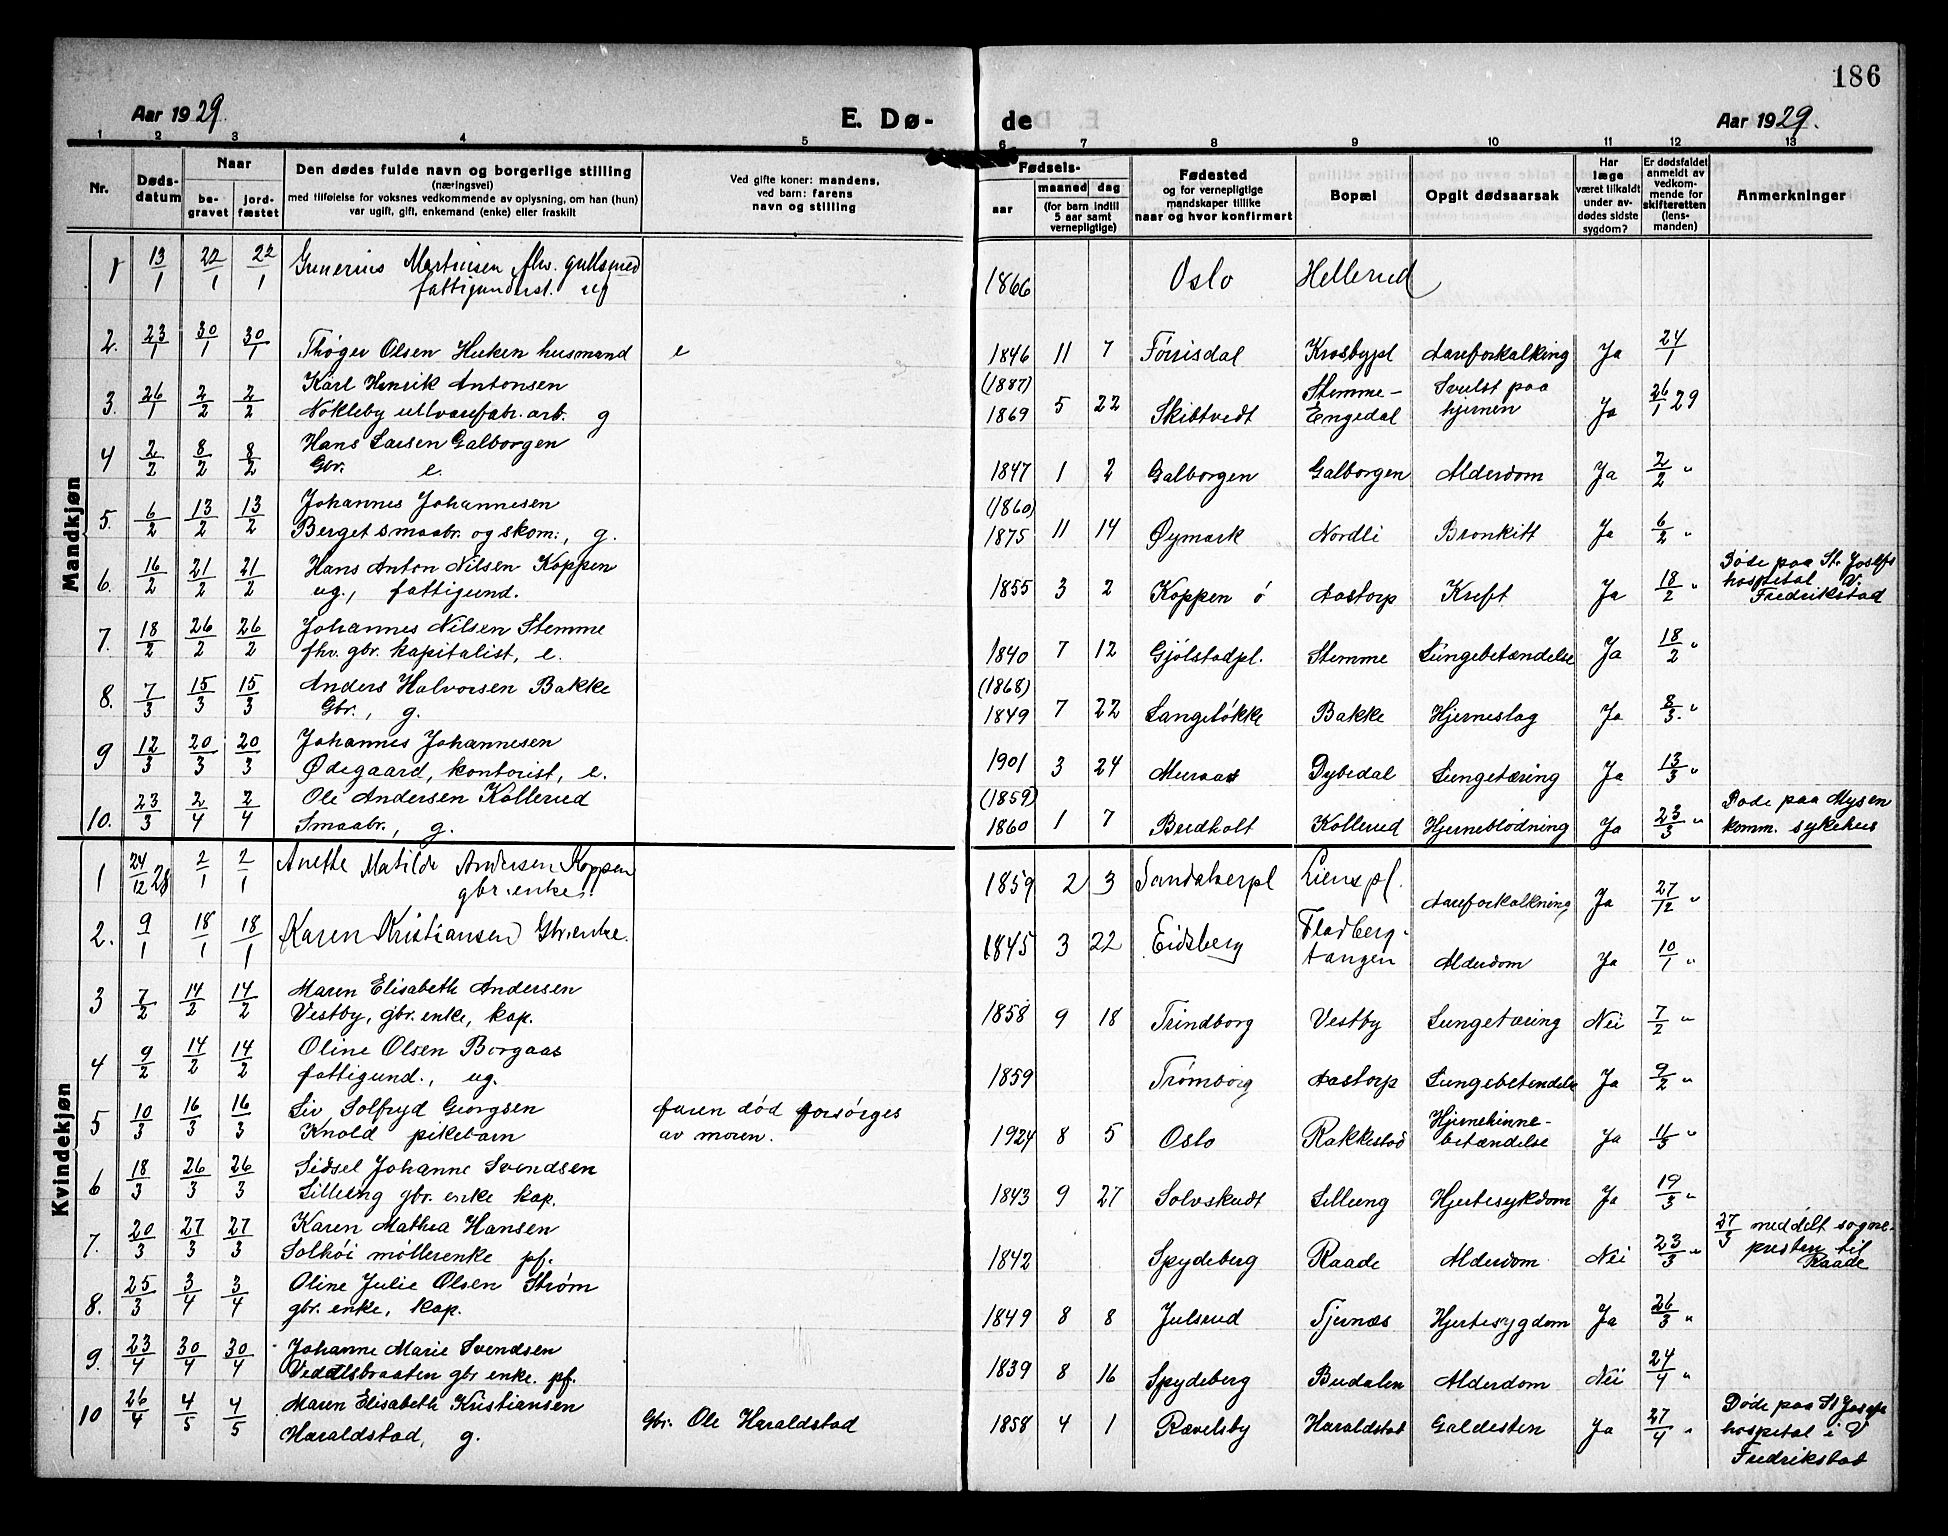 186
Aar 1929.
E. Dø-
de
Aar 1929.
1 2 3 4 5 6 7 8 9 10 11 12 13
Nr.
Døds-
datum
Naar
be-
gravet
jord-
fæstet
Den dødes fulde navn og borgerlige stilling
(næringsvei)
med tilføielse for voksnes vedkommende av oplysning, om han (hun)
var ugift, gift, enkemand (enke) eller fraskilt
Ved gifte koner: mandens,
ved barn: farens
navn og stilling
Fødsels-
aar
maaned
dag
(for barn indtil
5 aar samt
vernepligtige)
Fødested
og for vernepligtige
mandskaper tillike
naar og hvor konfirmert
Bopæl
Opgit dødsaarsak
Har
læge
været tilkaldt
under av-
dødes sidste
sygdom?
Er dødsfaldet
anmeldt av
vedkom-
mende for
skifteretten
(lens-
manden)
Anmerkninger
Mandkjøn
1 13/1 22/1 22/1 Gunerius Martinsen fhv. gullsmed
fattigunderst. ug 1866 Oslo Hellerud
2. 23/1 30/1 30/1 Thøger Olsen Huken husmand e 1846 11 7 Førrisdal Krosbypl Aareforkalkning Ja 24/1
3. 26/1 2/2 2/2 Karl Henrik Antonsen (1887) Stemme- Svulst paa
Nokleby ullvarefabr. arb. g 1869 5 22 Skibtvedt Engedal hjernen Ja 26/1 29
4 2/2 8/2 8/2 Hans Larsen Galborgen
Gbr. e. 1847 1 2 Galborgen Galborgen Alderdom Ja 2/2 "
5. 6/2 13/2 13/2 Johannes Johannesen (1860)
Berget smaabr. og skom., g. 1875 11 14 Øymark Nordli Bronkitt Ja 6/2 "
6. 16/2 21/2 21/2 Hans Anton Nilsen Koppen Døde paa St. Josefs
ug., fattigund. 1855 3 2 Koppen ø Aastorp Kreft Ja 18/2 " hospital V.
Fredrikstad
7. 18/2 26/2 26/2 Johannes Nilsen Stemme
fhv. gbr. kapitalist, e. 1840 7 12 Gjølstadpl. Stemme Lungebetændelse Ja 18/2 "
8. 7/3 15/3 15/3 Anders Halvorsen Bakke (1868)
Gbr., g. 1849 7 22 Langeløkke Bakke Hjerneslag Ja 8/3. "
9 12/3 20/3 20/3 Johannes Johannesen
Ødegaard, kontorist, e. 1901 3 24 Muraas Dybedal Lungetæring Ja 13/3 "
10. 23/3 2/4 2/4 Ole Andersen Kollerud (1859) Døde paa Mysen
Smaabr., g. 1860 1 7 Burdholt Kollerud Hjerneblødning Ja 23/3 " komm. sykehus
Kvindekjøn
1 24/12 28 2/1 2/1 Anette Matilde Andersen Koppen
gbr. enke. 1859 2 3 Sandakerpl Lienspl. Aareforkalkning Ja 27/12 "
2. 9/1 18/1 18/1 Karen Kristiansen Gbr. enke. 1845 3 22 Eidsberg Fladberg-
tangen Alderdom Ja 10/1 "
3 7/2 14/2 14/2 Maren Elisabeth Andersen
Vestby, gbr. enke, kap. 1858 9 18 Trindborg Vestby Lungetæring Nei 7/2 "
4 9/2 14/2 14/2 Oline Olsen Borgaas
fattigund., ug. 1859 Trømborg Aastorp Lungebetendelse Ja 9/2 "
5 10/3 16/3 16/3 Liv Solfryd Georgsen faren død forsørges Hjernehinne-
Knold pikebarn av moren. 1924 8 5 Oslo Rakkestad betændelse Ja 11/3 "
6 18/3 26/3 26/3 Sidsel Johanne Svendsen
Lilleeng gbr. enke kap. 1843 9 27 Solvskudt Lilleeng Hjertesykdom Ja 19/3 "
7. 20/3 27/3 27/3 Karen Mathea Hansen 27/3 meddelt sogne-
Solhøi møllerenke pf. 1842 Spydeberg Raade Alderdom Nei 23/3 " presten til
Raade
8. 25/3 3/4 3/4 Oline Julie Olsen Strøm
gbr. enke, kap. 1849 8 8 Julsrud Tjernæs Hjertesygdom Ja 26/3 "
9. 23/4 30/4 30/4 Johanne Marie Svendsen
Vedalsbraaten gbr. enke. pf. 1839 8 16 Spydeberg Budalen Alderdom Nei 24/4 "
10 26/4 4/5 4/5 Maren Elisabeth Kristiansen Døde paa St Josefs
Haraldstad, g. Gbr. Ole Haraldstad 1858 4 1 Rævelsby Haraldstad Galdesten Ja 27/4 " hospital i V
Fredrikstad